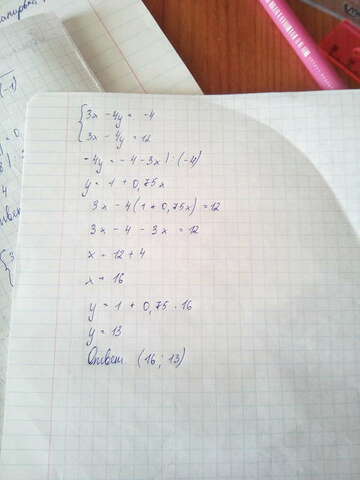 {3x - 4y = -4
{3x - 4y = 12
-4y = -4 - 3x | : (-4)
y = 1 + 0,75x
3x - 4(1 + 0,75x) = 12
3x - 4 - 3x = 12
x = 12 + 4
x = 16
y = 1 + 0,75 · 16
y = 13
Ответ (16; 13)